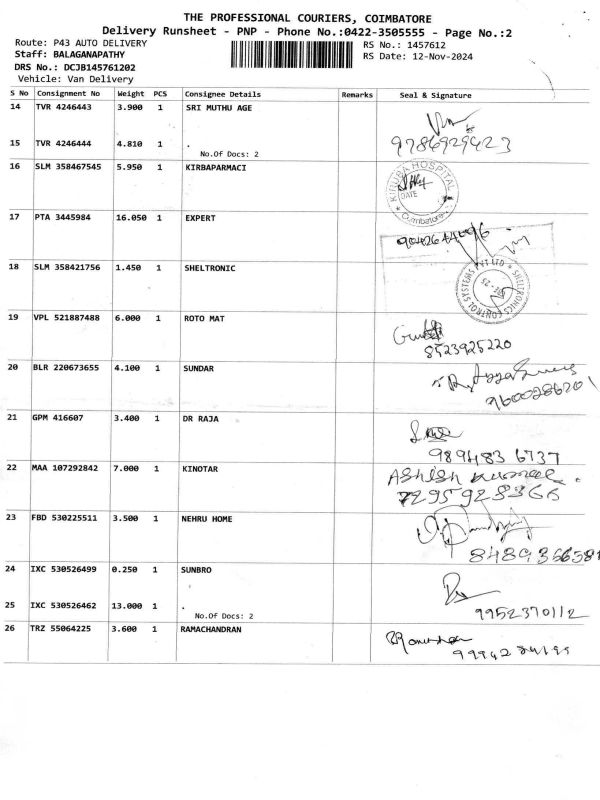 THE PROFESSIONAL COURIERS, COIMBATORE
Delivery Runsheet - PNP - Phone No.:0422-3505555 - Page No.:2
Route: P43 AUTO DELIVERY
RS No.: 1457612
Staff: BALAGANAPATHY
RS Date: 12-Nov-2024
DRS No.: DCJB145761202
Vehicle: Van Delivery
S No Consignment No Weight PCS Consignee Details Remarks Seal & Signature
14 TVR 4246443 3.900 1 SRI MUTHU AGE
15 TVR 4246444 4.810 1 .
9786929423
No.Of Docs: 2
16 SLM 358467545 5.950 1 KIRBAPARMACI
KIRUBA HOSPITAL
DATE
Coimbatore
17 PTA 3445984 16.050 1 EXPERT
18 SLM 358421756 1.450 1 SHELTRONIC
SHELTRONICS CONTROL SYSTEMS PVT LTD
19 VPL 521887488 6.000 1 ROTO MAT
8523925220
20 BLR 220673655 4.100 1 SUNDAR
9600286201
21 GPM 416607 3.400 1 DR RAJA
9894836737
22 MAA 107292842 7.000 1 KINOTAR
Ashish Kumar
7295928366
23 FBD 530225511 3.500 1 NEHRU HOME
8489366381
24 IXC 530526499 0.250 1 SUNBRO
25 IXC 530526462 13.000 1 .
9952370112
No.Of Docs: 2
26 TRZ 55064225 3.600 1 RAMACHANDRAN